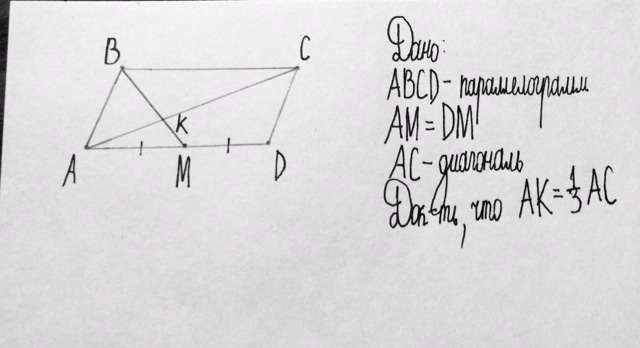 B
C
K
A
M
D
Дано:
ABCD - параллелограмм
AM = DM
AC - диагональ
Док-ть, что AK = 1/3 AC